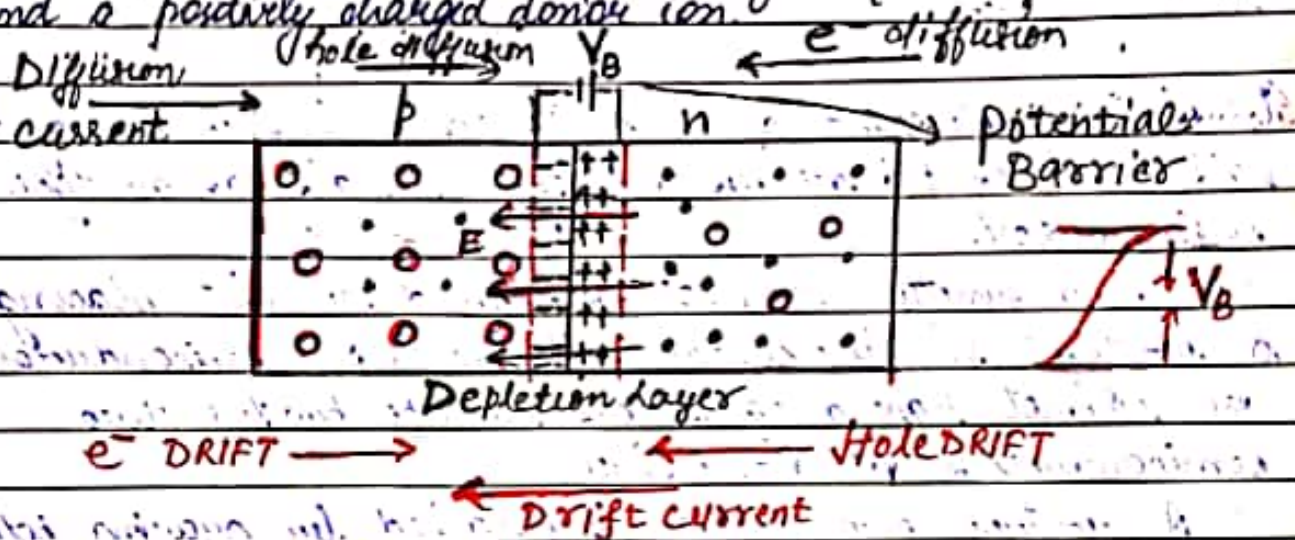 nd a positively charged donor ion.
hole diffusion
V_B
e⁻ diffusion
Diffusion
current
p
n
Potential
Barrier
E
V_B
Depletion Layer
e⁻ DRIFT
Hole DRIFT
Drift current